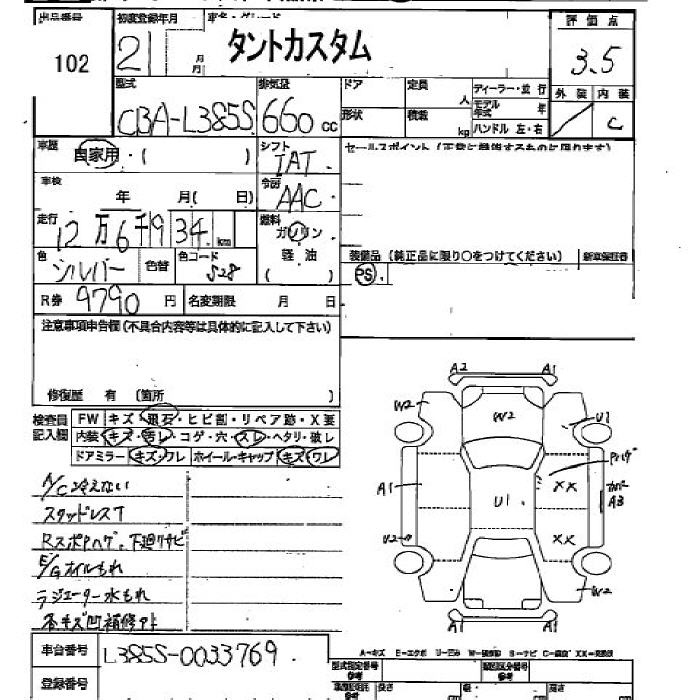 出品番号 初度登録年月 車名・グレード 評価点
102 21 月 月 タントカスタム 3.5
型式 排気量 ドア 定員 人 ディーラー・並行 外装 内装
CBA-L385S 660 cc 形状 積載 kg モデル年式 年 ハンドル 左・右 C
車歴 自家用・( ) シフト IAT セールスポイント(正常に機能するものに限ります)
車検 年 月( 日) 冷房 AAC
走行 12万6千934 km 燃料 ガソリン 軽油 ( )
色 シルバー 色替 色コード S28 装備品(純正品に限り○をつけてください) 新車保証書
PS
R券 9790 円 名変期限 月 日
注意事項申告欄(不具合内容等は具体的に記入して下さい)
修復歴 有 (箇所 )
検査員記入欄 FW キズ・飛石・ヒビ割・リペア跡・X要
内装 キズ・汚レ・コゲ・穴・スレ・ヘタリ・破レ
ドアミラー キズ・ワレ ホイール・キャップ キズ・ワレ
A/C冷えない
スタッドレス7
Rスポ穴ハゲ、下廻りサビ
E/Gオイルもれ
ラジエーター水もれ
各キズ凹補修アト
A2 A1
W2 W2 U1
A1 U1 XX A3
U2 XX
W2
A1 A1
A=キズ E=エクボ U=凹み W=補修跡 S=サビ C=腐食 XX=交換済
車台番号 L385S-0033769
型式指定番号 類別区分番号
登録番号 長さ 幅 高さ